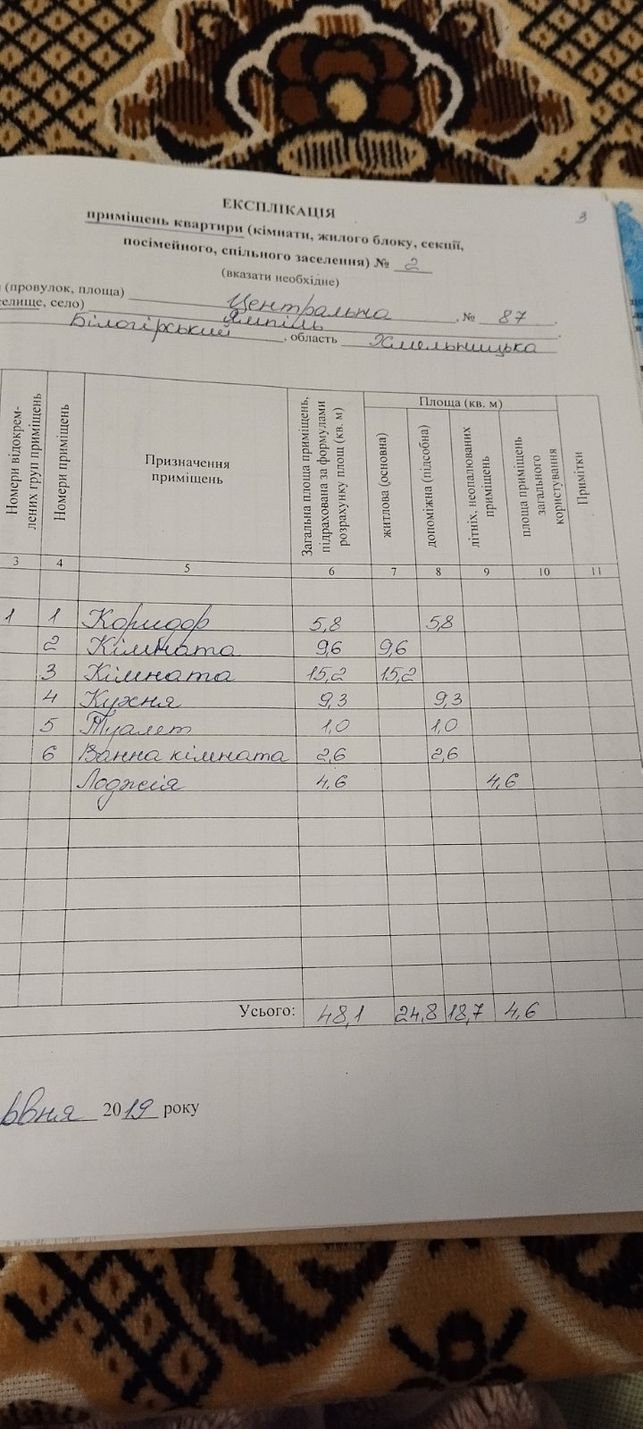 3
ЕКСПЛІКАЦІЯ
приміщень квартири (кімнати, жилого блоку, секції,
посімейного, спільного заселення) № 2
(вказати необхідне)
(провулок, площа) Центральна, № 87
селище, село) Ямпіль
Білогірський, область Хмельницька
Номери відокрем-
лених груп приміщень
Номери приміщень
Призначення
приміщень
Загальна площа приміщень,
підрахована за формулами
розрахунку площ (кв. м)
Площа (кв. м)
житлова (основна)
допоміжна (підсобна)
літніх, неопалюваних
приміщень
площа приміщень
загального
користування
Примітки
3 4 5 6 7 8 9 10 11
1 1 Коридор 5,8 5,8
2 Кімната 9,6 9,6
3 Кімната 15,2 15,2
4 Кухня 9,3 9,3
5 Туалет 1,0 1,0
6 Ванна кімната 2,6 2,6
Лоджія 4,6 4,6
Усього: 48,1 24,8 18,7 4,6
рвня 2019 року